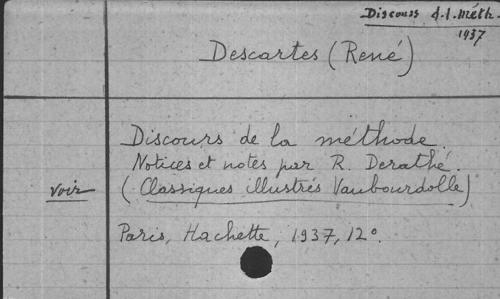 Discours d.l.Méth.
1937
Descartes (René)
Discours de la méthode.
Notices et notes par R. Derathé.
voir (Classiques illustrés Vaubourdolle)
Paris, Hachette, 1937, 12°.